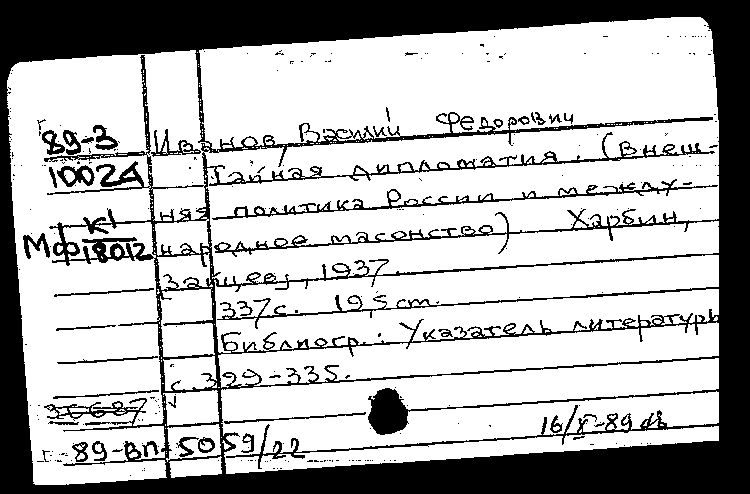 89-3
10024
Иванов, Василий Федорович
Тайная дипломатия. (Внеш-
няя политика России и между-
народное масонство) Харбин,
Мф К1
18012
Зайцев, 1937.
337 с. 19,5 cm.
Библиогр.: Указатель литературы
с. 399-335.
36687
89-ВП-5059/22
16/X-89